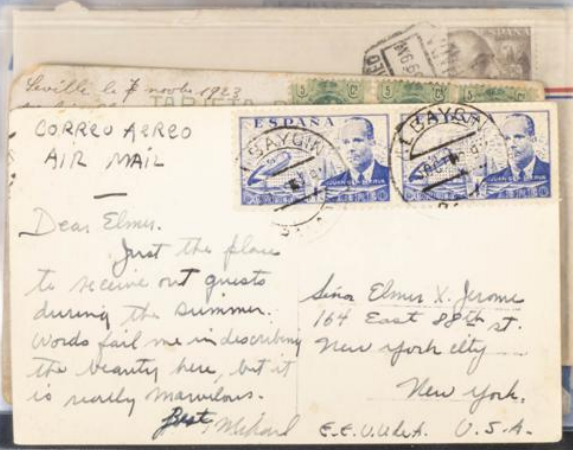 ESPAÑA
Seville le 7 novbre 1923
TARJETA
5 C 5 C 5 C
CORREO AEREO
AIR MAIL
ESPAÑA
JUAN DE LA CIERVA
Dear Elmer.
Just the place
to receive out guests
during the summer.
Words fail me in describing
the beauty here, but it
is really marvelous.
Best, Michael
Señor Elmer X. Jerome
164 East 88th St.
New York City
New York.
E.E.U.U. de A. U.S.A.